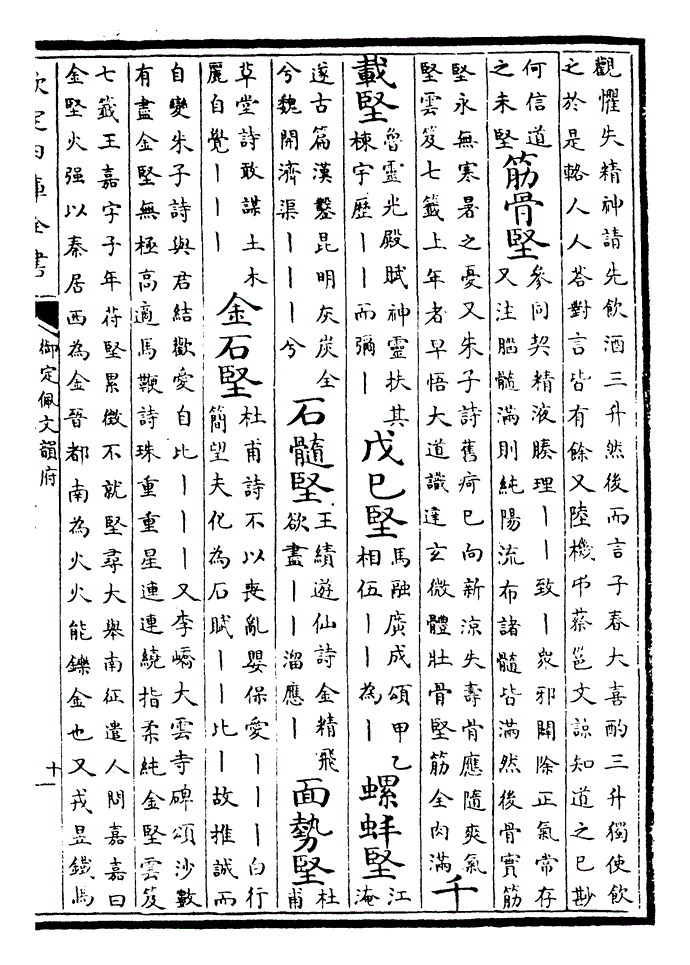 觀懼失精神請先飲酒三升然後而言子春大喜酌三升獨使飲
之於是輅人人答對言皆有餘又陸機弔蔡邕文諒知道之已尠
何信道
之未堅
筋骨堅
參同契精液腠理丨丨致丨衆邪闢除正氣常存
又注腦髓滿則純陽流布諸髓皆滿然後骨實筋
堅永無寒暑之憂又朱子詩舊疴已向新涼失壽骨應隨爽氣
堅雲笈七籤上年者早悟大道識達玄微體壯骨堅筋全肉滿
千
載堅
魯靈光殿賦神靈扶其
棟宇歷丨丨而彌丨
戊巳堅
馬融廣成頌甲乙
相伍丨丨為丨
螺蚌堅
江
淹
遂古篇漢鑿昆明灰炭全
兮魏開濟渠丨丨丨兮
石髓堅
王績遊仙詩金精飛
欲盡丨丨溜應丨
面勢堅
杜
甫
草堂詩敢謀土木
麗自覺丨丨丨
金石堅
杜甫詩不以喪亂嬰保愛丨丨丨白行
簡望夫化為石賦丨丨比丨故推誠而
自變朱子詩與君結歡愛自比丨丨丨又李嶠大雲寺碑頌沙數
有盡金堅無極高適馬鞭詩珠重重星連連繞指柔純金堅雲笈
七籤王嘉字子年苻堅累徵不就堅尋大舉南征遣人問嘉嘉曰
金堅火强以秦居西為金晉都南為火火能鑠金也又戎昱鐵馬
欽定四庫全書
御定佩文韻府
十一